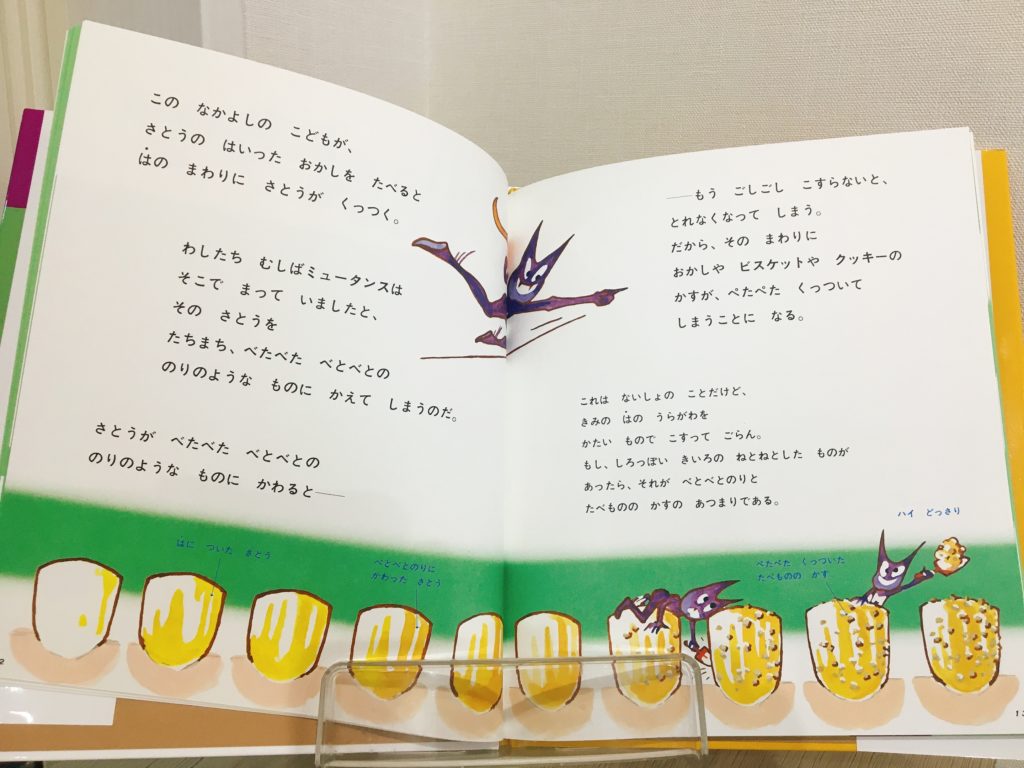 この なかよしの こどもが、
さとうの はいった おかしを たべると
はの まわりに さとうが くっつく。
わしたち むしばミュータンスは
そこで まって いましたと、
その さとうを
たちまち、べたべた べとべとの
のりのような ものに かえて しまうのだ。
さとうが べたべた べとべとの
のりのような ものに かわると――
はに ついた さとう
べとべとのりに
かわった さとう
――もう ごしごし こすらないと、
とれなくなって しまう。
だから、その まわりに
おかしや ビスケットや クッキーの
かすが、ぺたぺた くっついて
しまうことに なる。
これは ないしょの ことだけど、
きみの はの うらがわを
かたい もので こすって ごらん。
もし、しろっぽい きいろの ねとねとした ものが
あったら、それが べとべとのりと
たべものの かすの あつまりである。
ハイ どっさり
ぺたぺた くっついた
たべものの かす